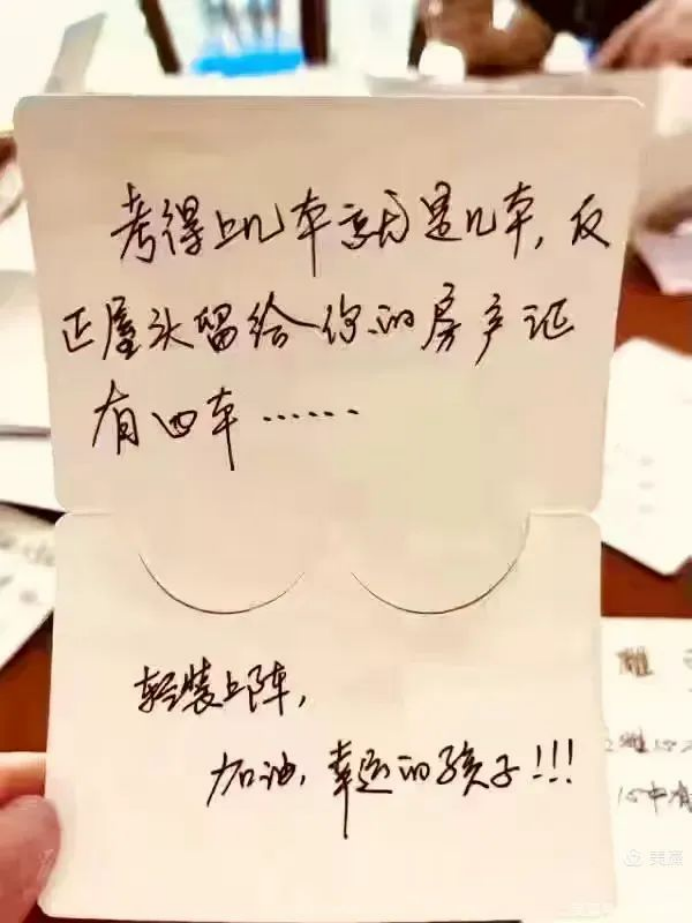 考得上几本就是几本,反
正屋头留给你的房产证
有四本……
轻装上阵,
加油,幸运的孩子!!!
心中有
美篇